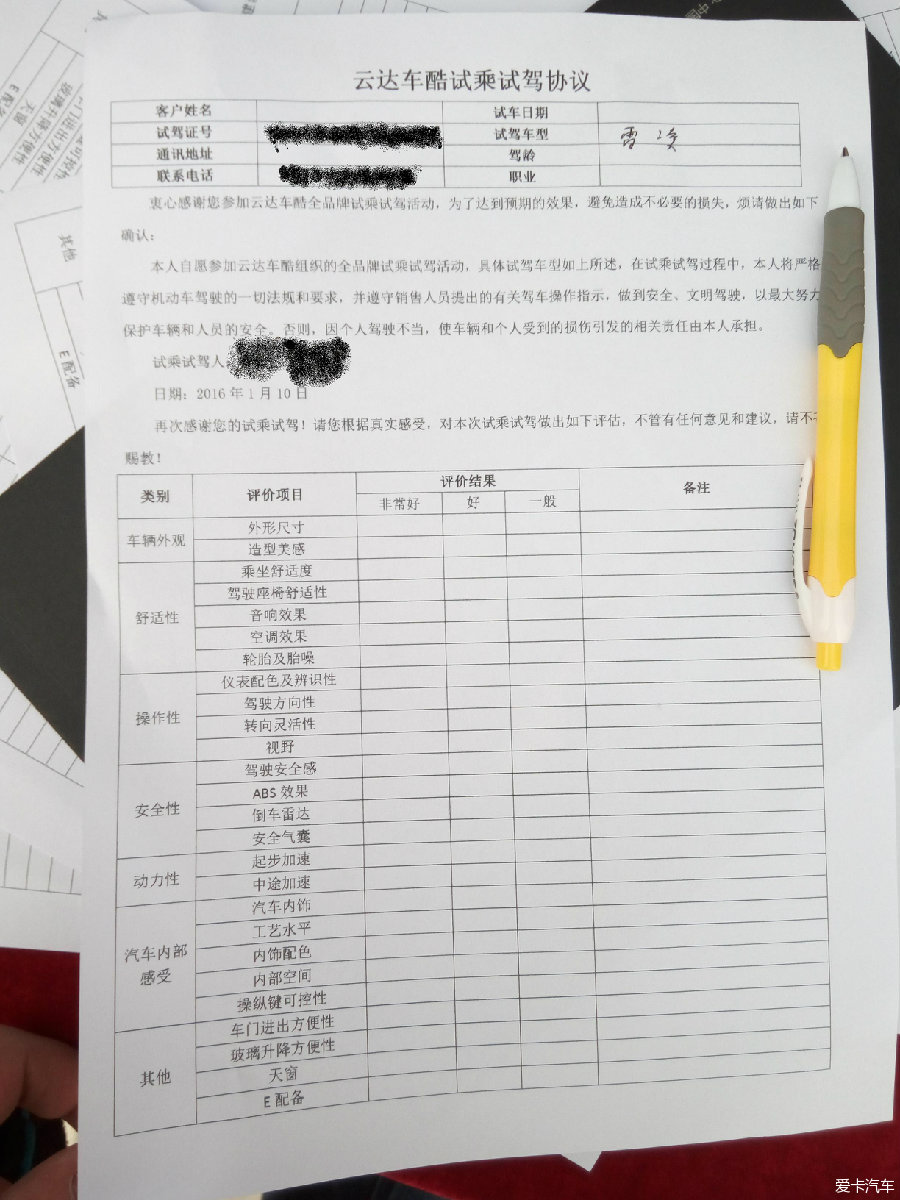 云达车酷试乘试驾协议
客户姓名 试车日期
试驾证号 试驾车型 雷凌
通讯地址 驾龄
联系电话 职业
衷心感谢您参加云达车酷全品牌试乘试驾活动，为了达到预期的效果，避免造成不必要的损失，烦请做出如下
确认：
本人自愿参加云达车酷组织的全品牌试乘试驾活动，具体试驾车型如上所述，在试乘试驾过程中，本人将严格
遵守机动车驾驶的一切法规和要求，并遵守销售人员提出的有关驾车操作指示，做到安全、文明驾驶，以最大努力
保护车辆和人员的安全。否则，因个人驾驶不当，使车辆和个人受到的损伤引发的相关责任由本人承担。
试乘试驾人
日期：2016年1月10日
再次感谢您的试乘试驾！请您根据真实感受，对本次试乘试驾做出如下评估，不管有任何意见和建议，请不
赐教！
类别 评价项目 评价结果 备注
非常好 好 一般
车辆外观 外形尺寸
造型美感
舒适性 乘坐舒适度
驾驶座椅舒适性
音响效果
空调效果
轮胎及胎噪
操作性 仪表配色及辨识性
驾驶方向性
转向灵活性
视野
安全性 驾驶安全感
ABS 效果
倒车雷达
安全气囊
动力性 起步加速
中途加速
汽车内部感受 汽车内饰
工艺水平
内饰配色
内部空间
操纵键可控性
其他 车门进出方便性
玻璃升降方便性
天窗
E 配备
其他
E 配备
玻璃升降方便性
天窗
E 配备
爱卡汽车